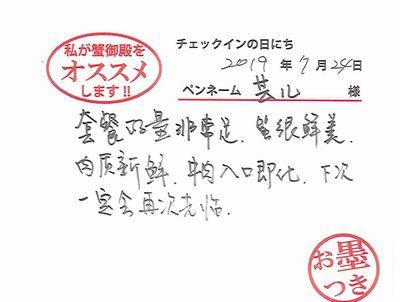 私が蟹御殿を
オススメ
します!!
チェックインの日にち
2019 年 7 月 24 日
ペンネーム 芸儿 様
套餐的量非常足，蟹很鲜美，
肉质新鲜，牛肉入口即化，下次
一定会再次光临.
お墨
つき